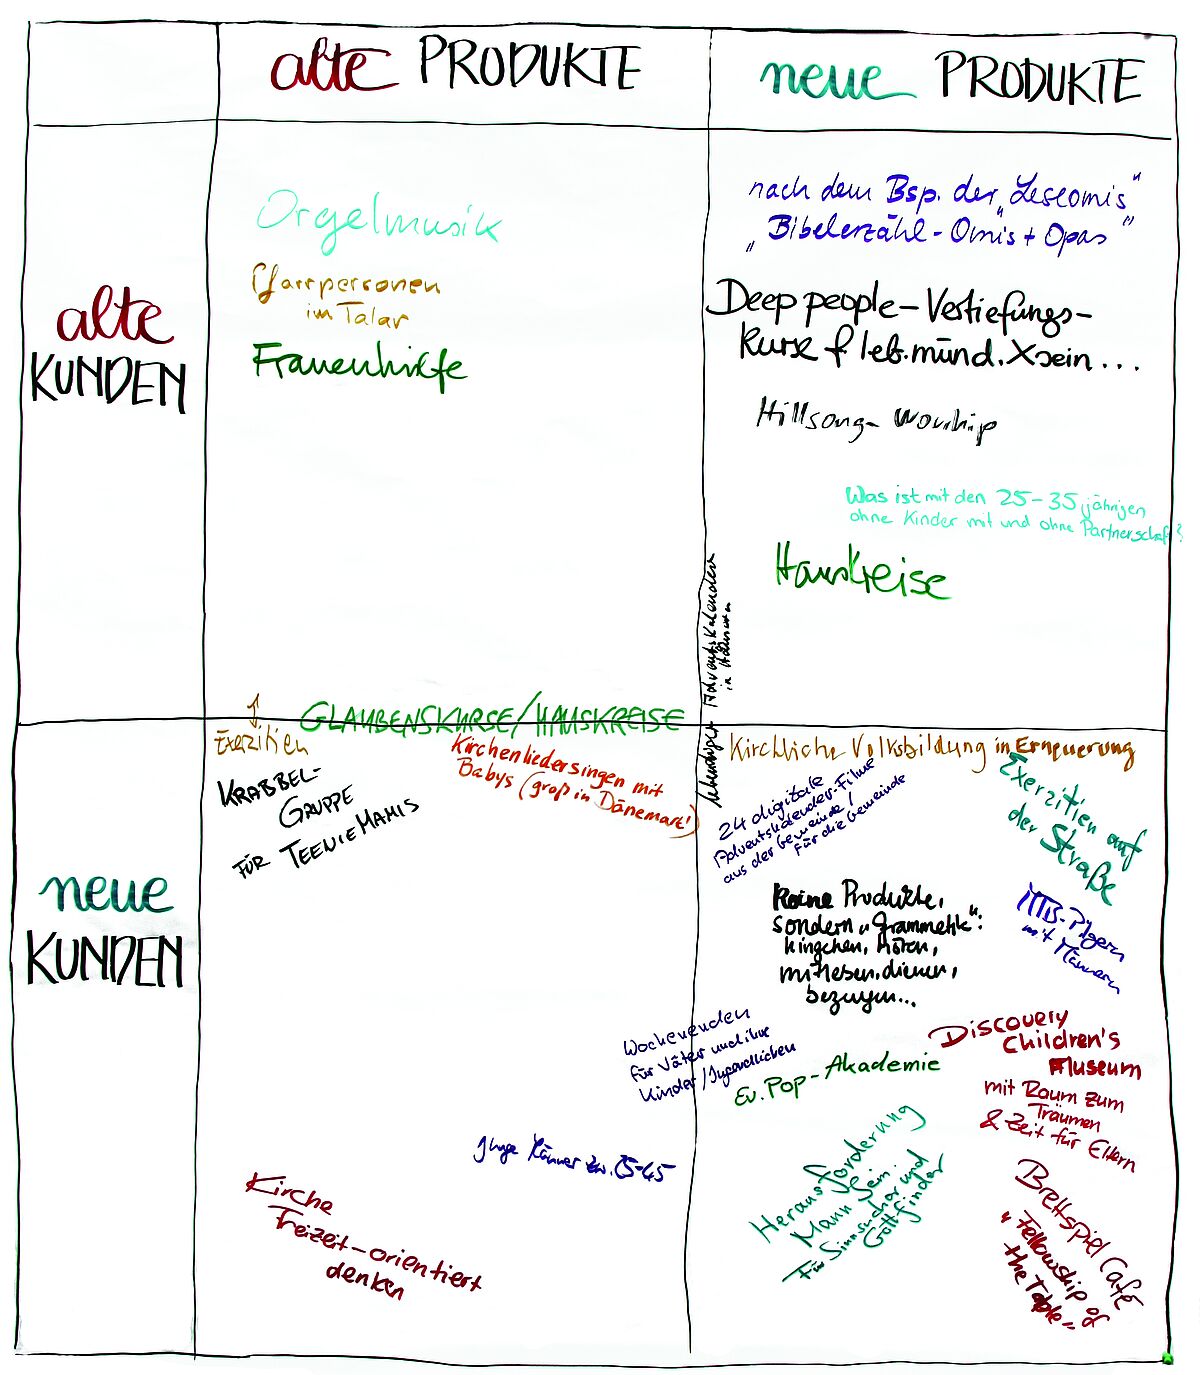 alte PRODUKTE
neue PRODUKTE
alte
KUNDEN
Orgelmusik
Pfarrpersonen
im Talar
Frauenhilfe
nach dem Bsp. der „Leseomis"
„Bibelerzähl-Omis + Opas"
Deep people - Vertiefungs-
kurse f. leb. münd. Xsein ...
Hillsong-Worship
Was ist mit den 25-35 jährigen
ohne Kinder mit und ohne Partnerschaft?
Hauskreise
lebendiger Adventskalender
in Häusern
GLAUBENSKURSE/HAUSKREISE
neue
KUNDEN
Exerzitien
KRABBEL-
GRUPPE
FÜR TEENIEMAMIS
Kirchenliedersingen mit
Babys (groß in Dänemark!)
Wochenenden
für Väter und ihre
Kinder/Jugendlichen
junge Männer zw. 25-45
Kirche
Freizeit-orientiert
denken
Kirchliche Volksbildung in Erneuerung
24 digitale
Adventskalender-Filme
aus der Gemeinde/
für die Gemeinde
Exerzitien auf
der Straße
Keine Produkte,
sondern „Grammatik":
hingehen, hören,
mitleben, dienen,
bezeugen...
MTB-Pilgern
mit Männern
Discovery
Children's
Museum
mit Raum zum
Träumen
& Zeit für Eltern
Ev. Pop-Akademie
Herausforderung
Mann sein.
Für Sinnsucher und
Gottfinder
Brettspiel Café
"Fellowship of
the Table"